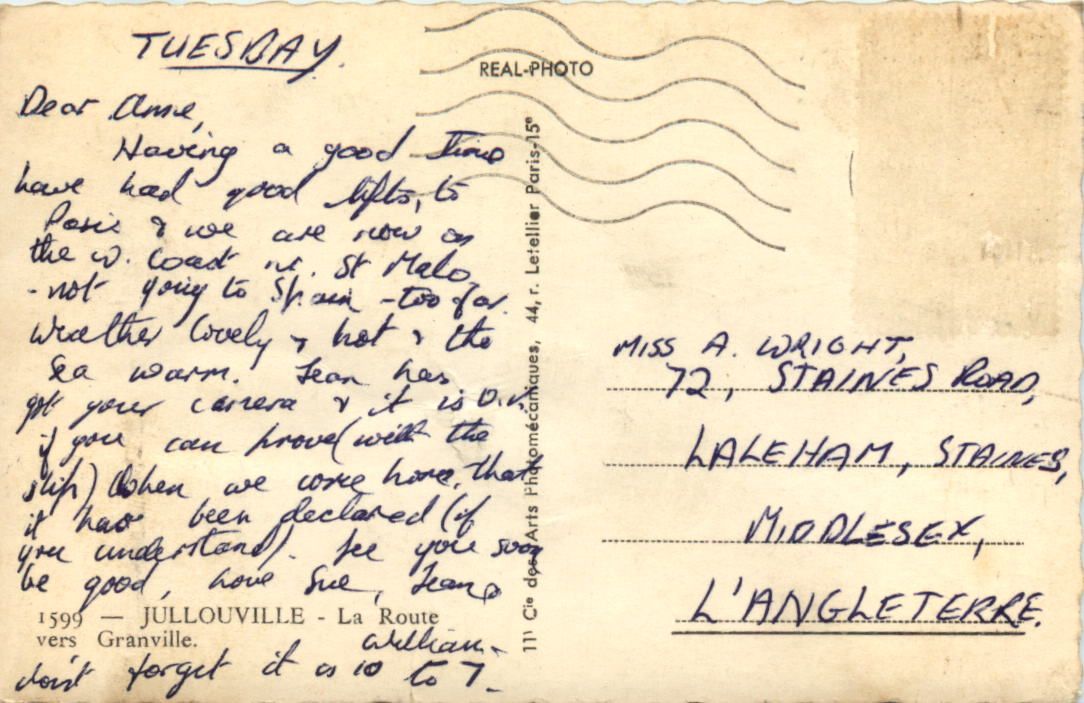 TUESDAY.
Dear Anne,
Having a good time
have had good lifts, to
Paris & we are now on
the W. Coast nr. St Malo
- not going to Spain - too far.
Weather lovely & hot & the
Sea warm. Jean has
got your camera & it is O.K.
if you can prove (with the
slip) when we come home, that
it has been declared (if
you understand). See you soon
be good, love Sue, Jean &
William.
don't forget it is 10 to 7.
1599 — JULLOUVILLE - La Route
vers Granville.
REAL-PHOTO
11¹ Cie des Arts Photomécaniques, 44, r. Letellier Paris-15e
MISS A. WRIGHT,
72, STAINES ROAD,
LALEHAM, STAINES,
MIDDLESEX,
L'ANGLETERRE.